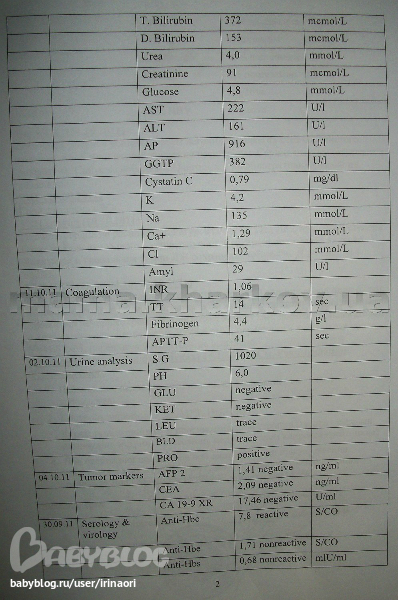 T. Bilirubin 372 mcmol/L
D. Bilirubin 153 mcmol/L
Urea 4,0 mmol/L
Creatinine 91 mcmol/L
Glucose 4,8 mmol/L
AST 222 U/l
ALT 161 U/l
AP 916 U/l
GGTP 382 U/l
Cystatin C 0,79 mg/dl
K 4,2 mmol/L
Na 135 mmol/L
Ca+ 1,29 mmol/L
Cl 102 mmol/L
Amyl 29 U/l
11.10.11 Coagulation INR 1,06
TT 14 sec
Fibrinogen 4,4 g/l
APTT-P 41 sec
02.10.11 Urine analysis S G 1020
PH 6,0
GLU negative
KET negative
LEU trace
BLD trace
PRO positive
04.10.11 Tumor markers AFP 2 1,41 negative ng/ml
CEA 2,09 negative ng/ml
CA 19-9 XR 17,46 negative U/ml
30.09.11 Serology & virology Anti-Hbc 7,8 reactive S/CO
Anti-Hbe 1,71 nonreactive S/CO
Anti-Hbs 0,68 nonreactive mIU/ml
2
BABYBLOG
babyblog.ru/user/irinaori